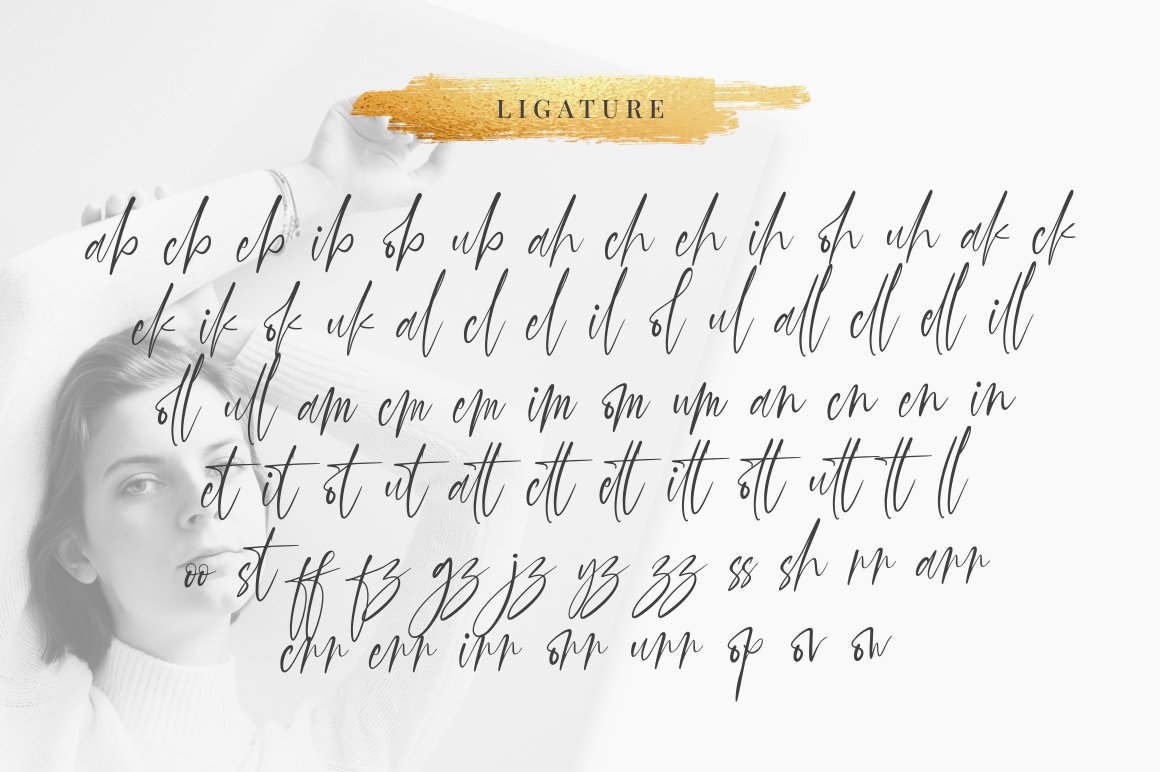 LIGATURE
ab cb eb ib ob ub ah ch eh ih oh uh ak ck
ek ik ok uk al cl el il ol ul all cll ell ill
oll ull am cm em im om um an cn en in
et it ot ut att ctt ett itt ott utt tt ll
oo st ff fz gz jz yz zz ss sh rr arr
crr err irr orr urr op ov ow